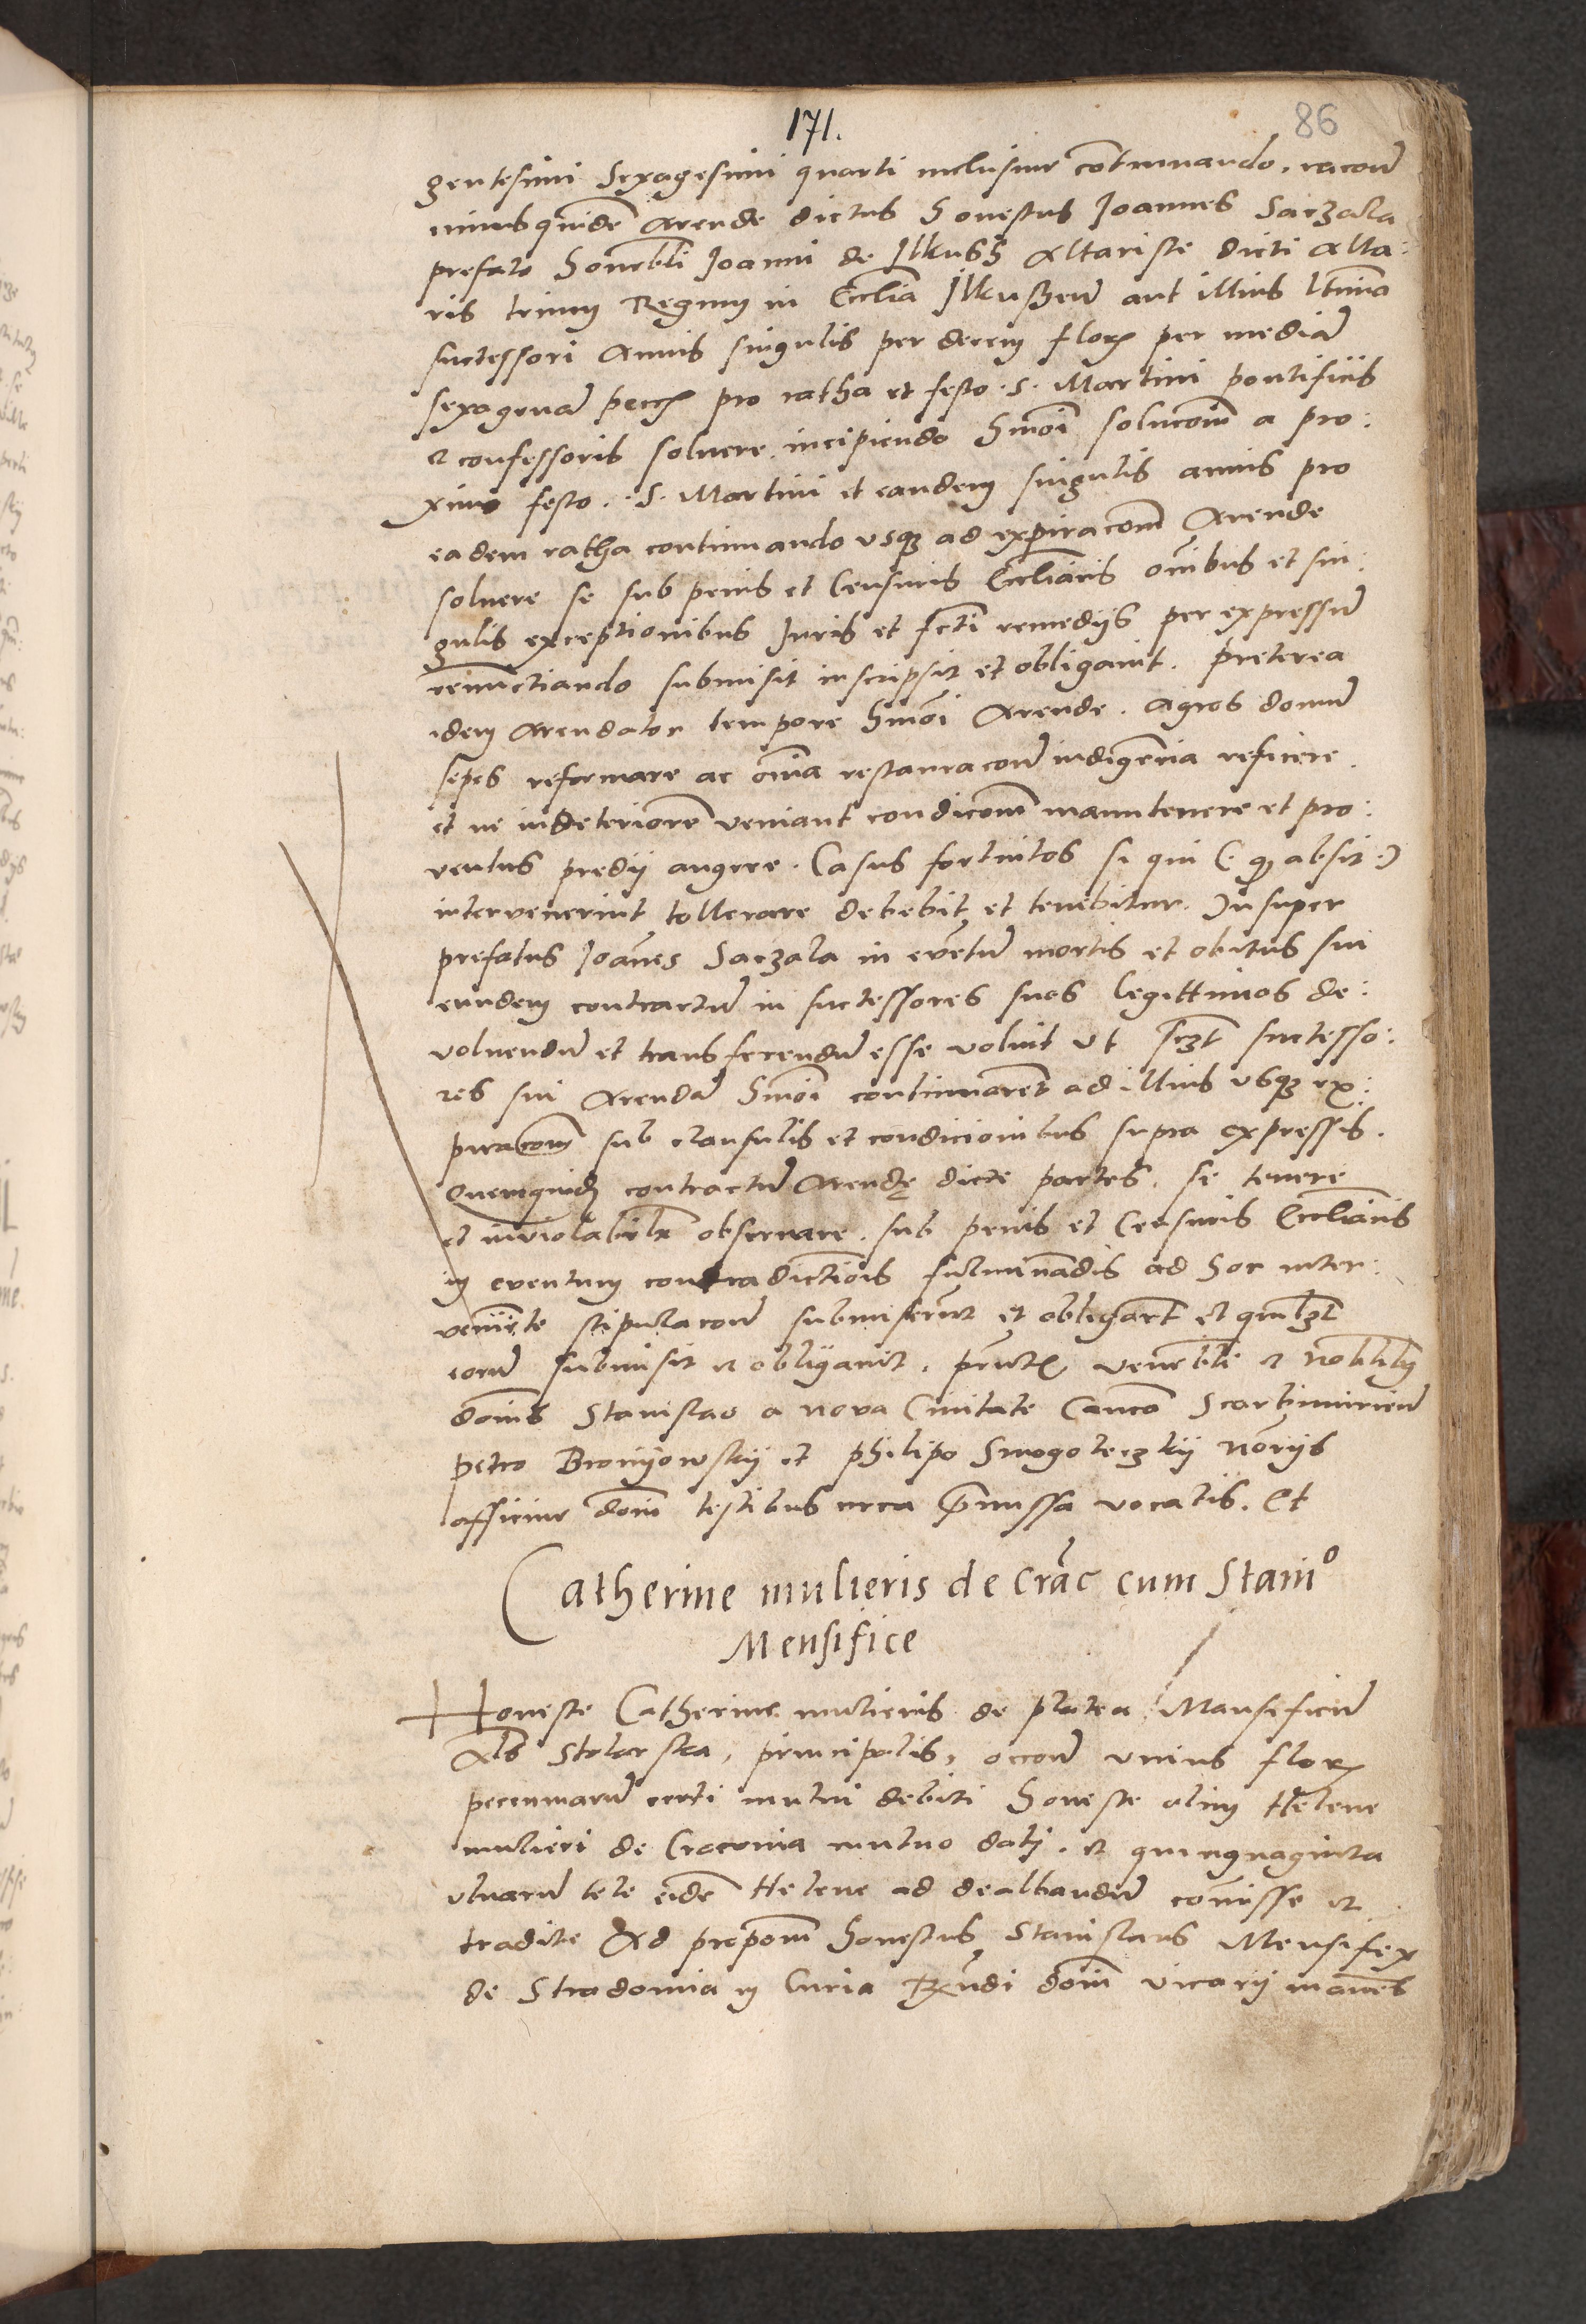 171.
86
gentesimi Sexagesimi quarti inclusiue continuando, racone
cuiusquide Arende dictus honestus Joannes Saczala
prefato honorbli Joanni de Jlkuss Altariste dicti Alta:
ris trium Regum in Ecclia Jlkussien aut illius ltimo
successori Annis singulis per decem flor per media
sexagena pecc pro ratha et festo . S . Martini pontificis
et confessoris soluere. incipiendo hmoi solucom a pro:
ximo festo . S . Martini et eandem singulis annis pro
eadem ratha continuando vsq ad expiracom Arende
soluere se sub penis et Censuris Eccliasticis oibus et sin:
gulis exceptionibus Juris et fcti remedijs per expressu
renunctiando submisit inscripsit et obligauit. Preterea
idem Arendator tempore hmoi Arende. Agros domu
sepes reformare ac oia restauracone indigencia reficere.
et ne indeteriore veniant condicom manutenere et pro:
ventus predij augere. Casus fortuitos si qui (. q absit .)
intervenerint tollerare debebit et tenebitur. Insuper
prefatus Joanes Saczala in eventu mortis et obitus sui
eundem contractu in successores suos legittimos de:
voluendu et transferendu esse voluit vt sczt successo:
res sui Arenda hmoi continuarent ad illius vsq ex:
piracom sub clausulis et condicionibus supra expressis.
Quemquid contractu Arendę dicte partes. se tenere
et inviolabilr obseruare. sub penis et Censuris Eccliasticis
in eventum contradictiois fulminadis ad hoc inter:
veniete stipulacone submiserut et obligarut et quilzt
eoru submisit et obligauit. pntib venerbli et Nobilibq
domis Stanislao a nova Ciuitate Canco Scarbimirien
Petro Bronyowsky et Philipo Smogoleczky Norijs
officiue dom testibus circa pmissa vocatis. Et
Catherine mulieris de crac cum Stanio
Mensifice
Honeste Catherine mulieris de platea Mansificum
Als Stolarska, principalis, occone vnius flor
pecuniaru certi mutui debiti honeste olim Helene
mulieri de Cracouia mutuo dati. et quinquaginta
vlnaru tele eide Helene ad dealbandu comisse et
tradite Ad propom honestus Stanislaus Mensifex
de Stradomia in Curia Rndi dom vicarij manes